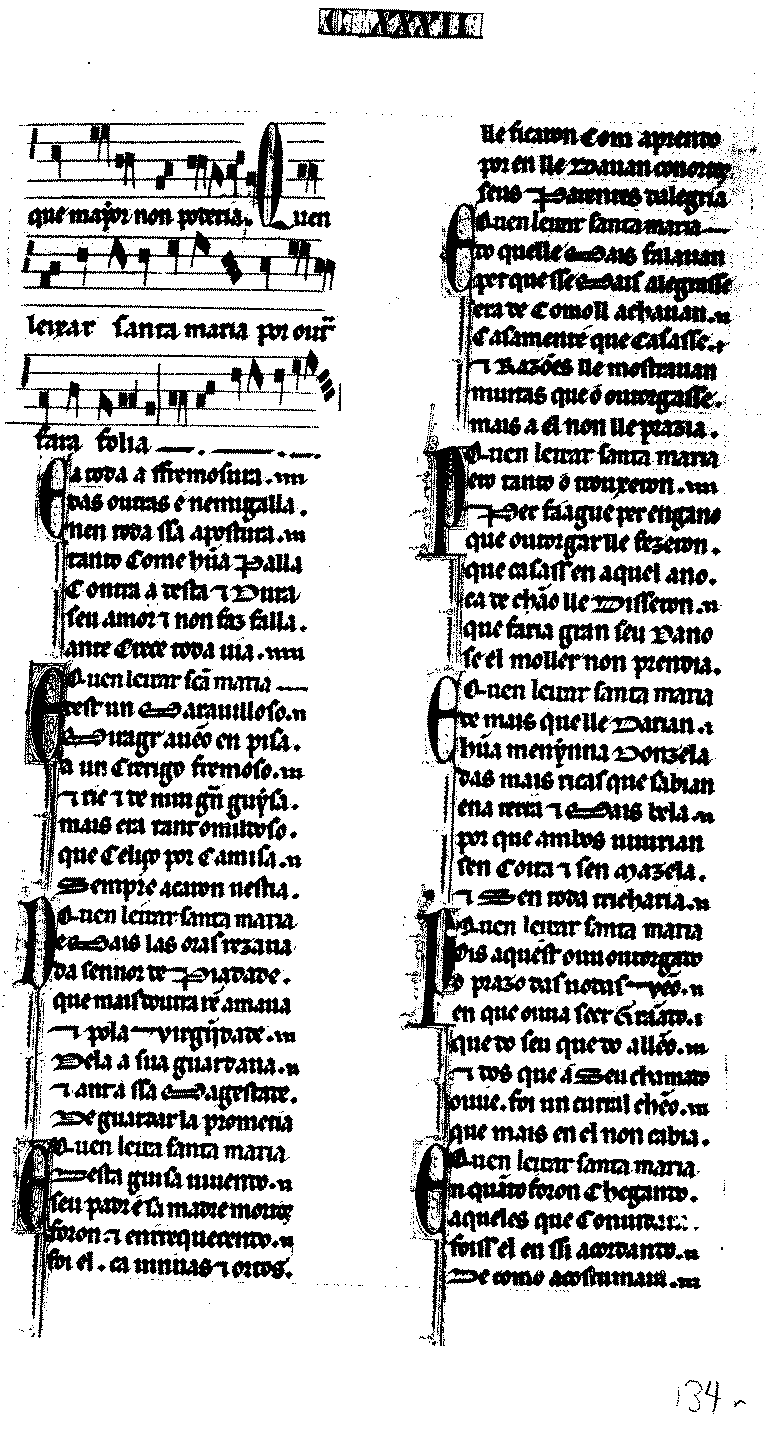 C XXXII
que mayor non poderia. Quen
leixar santa maria por outr̄
fara folia
E a toda a ffremosura. 
das outras e nemigalla.
nen toda ssa apostura.
tanto Come hũa palla
Contra a desta ⁊ Dura
seu amor ⁊ non faz falla.
ante Crece toda uia.
Quen leixar scã maria
E dest un Marauilloso.
Miragr aueo en pisa.
a un Crerigo fremoso.
⁊ ric ⁊ de mui gñ guysa.
mais era tant omildoso.
que Celiço por Camisa.
Sempre acaron uestia.
Quen leixar santa maria
E Mais las oras rezaua
da sennor de Piadade.
que mais doutra ré amaua
⁊ pola virgĩidade.
Dela a sua guardaua.
⁊ ant a ssa Magestade.
De guardarla prometia
Quen leixar santa maria
E Desta guisa uiuendo.
seu padr e sa madre morrer
foron. ⁊ enrrequecendo.
foi el. ca uinnas ⁊ ortos.
lle ficaron Com aprendo
por en lle Dauan conortos
seus Parentes dalegria
Quen leixar santa maria
E do quelle Mais falauan
per que sse Mais alegrasse
era de Comoll achauan.
Casamente que Casasse.
⁊ Razões lle mostrauan
muitas que o outorgasse.
mais a el non lle prazia.
Quen leixar santa maria
Pero tanto o trouxeron.
Per faagu e per engano
que outorgar lle fezeron.
que casass en aquel ano.
ca de chão lle Disseron.
que faria gran seu Dano
se el moller non prendia.
Quen leixar santa maria
E de mais que lle Darian.
hũa menynna Donzela
das mais ricas que sabian
ena terra ⁊ Mais bela.
por que ambos uiuirian
sen Coita ⁊ sen Mazela.
⁊ Sen toda tricharia.
Quen leixar santa maria
Pois aquest ouu outorgado
o prazo das uodas veo.
en que ouua seer Grãado.
que do seu que do allẽo.
⁊ dos que a Seu chamado
ouue. foi un curral chẽo.
que mais en el non cabia.
Quen leixar santa maria
E en quãto foron Chegando.
aqueles que Conuidara.
foiss el en ssi acordando.
De como acostumara.
134